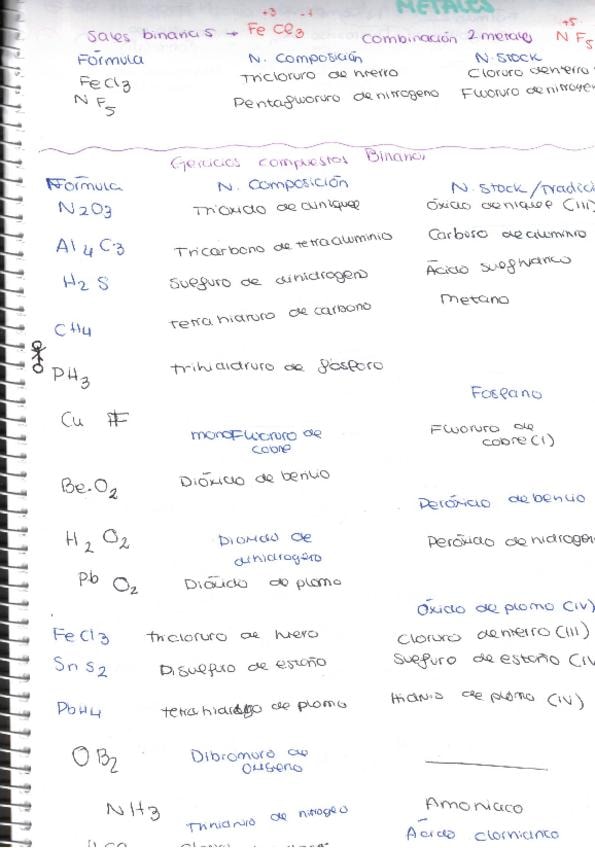 METALES
+3 -1
Sales binarias → FeCl3 combinación 2 metales NF5
+5
Fórmula N. Composición N. Stock
FeCl3 Tricloruro de hierro Cloruro de hierro
NF5 Pentafluoruro de nitrógeno Fluoruro de nitrógen
Ejercicios compuestos Binari
Fórmula N. Composición N. Stock/Tradici
N2O3 Trióxido de diníquel óxido de níquel (III)
Al4C3 Tricarbono de tetraaluminio Carburo de aluminio
H2S Sulfuro de dihidrógeno Ácido sulfhídrico
CH4 tetrahidruro de carbono metano
PH3 trihidruro de fósforo Fosfano
CuF monofluoruro de cobre Fluoruro de cobre (I)
BeO2 Dióxido de berilio Peróxido de berilio
H2O2 Dióxido de dihidrógeno Peróxido de hidrógen
PbO2 Dióxido de plomo Óxido de plomo (IV)
FeCl3 tricloruro de hierro Cloruro de hierro (III)
SnS2 Disulfuro de estaño Sulfuro de estaño (IV
PbH4 de plomo Hidruro de plomo (IV)
OB2 Dibromuro de oxígeno
NH3 Trihidruro de nitrógeno Amoniaco
Ácido clorhídrico